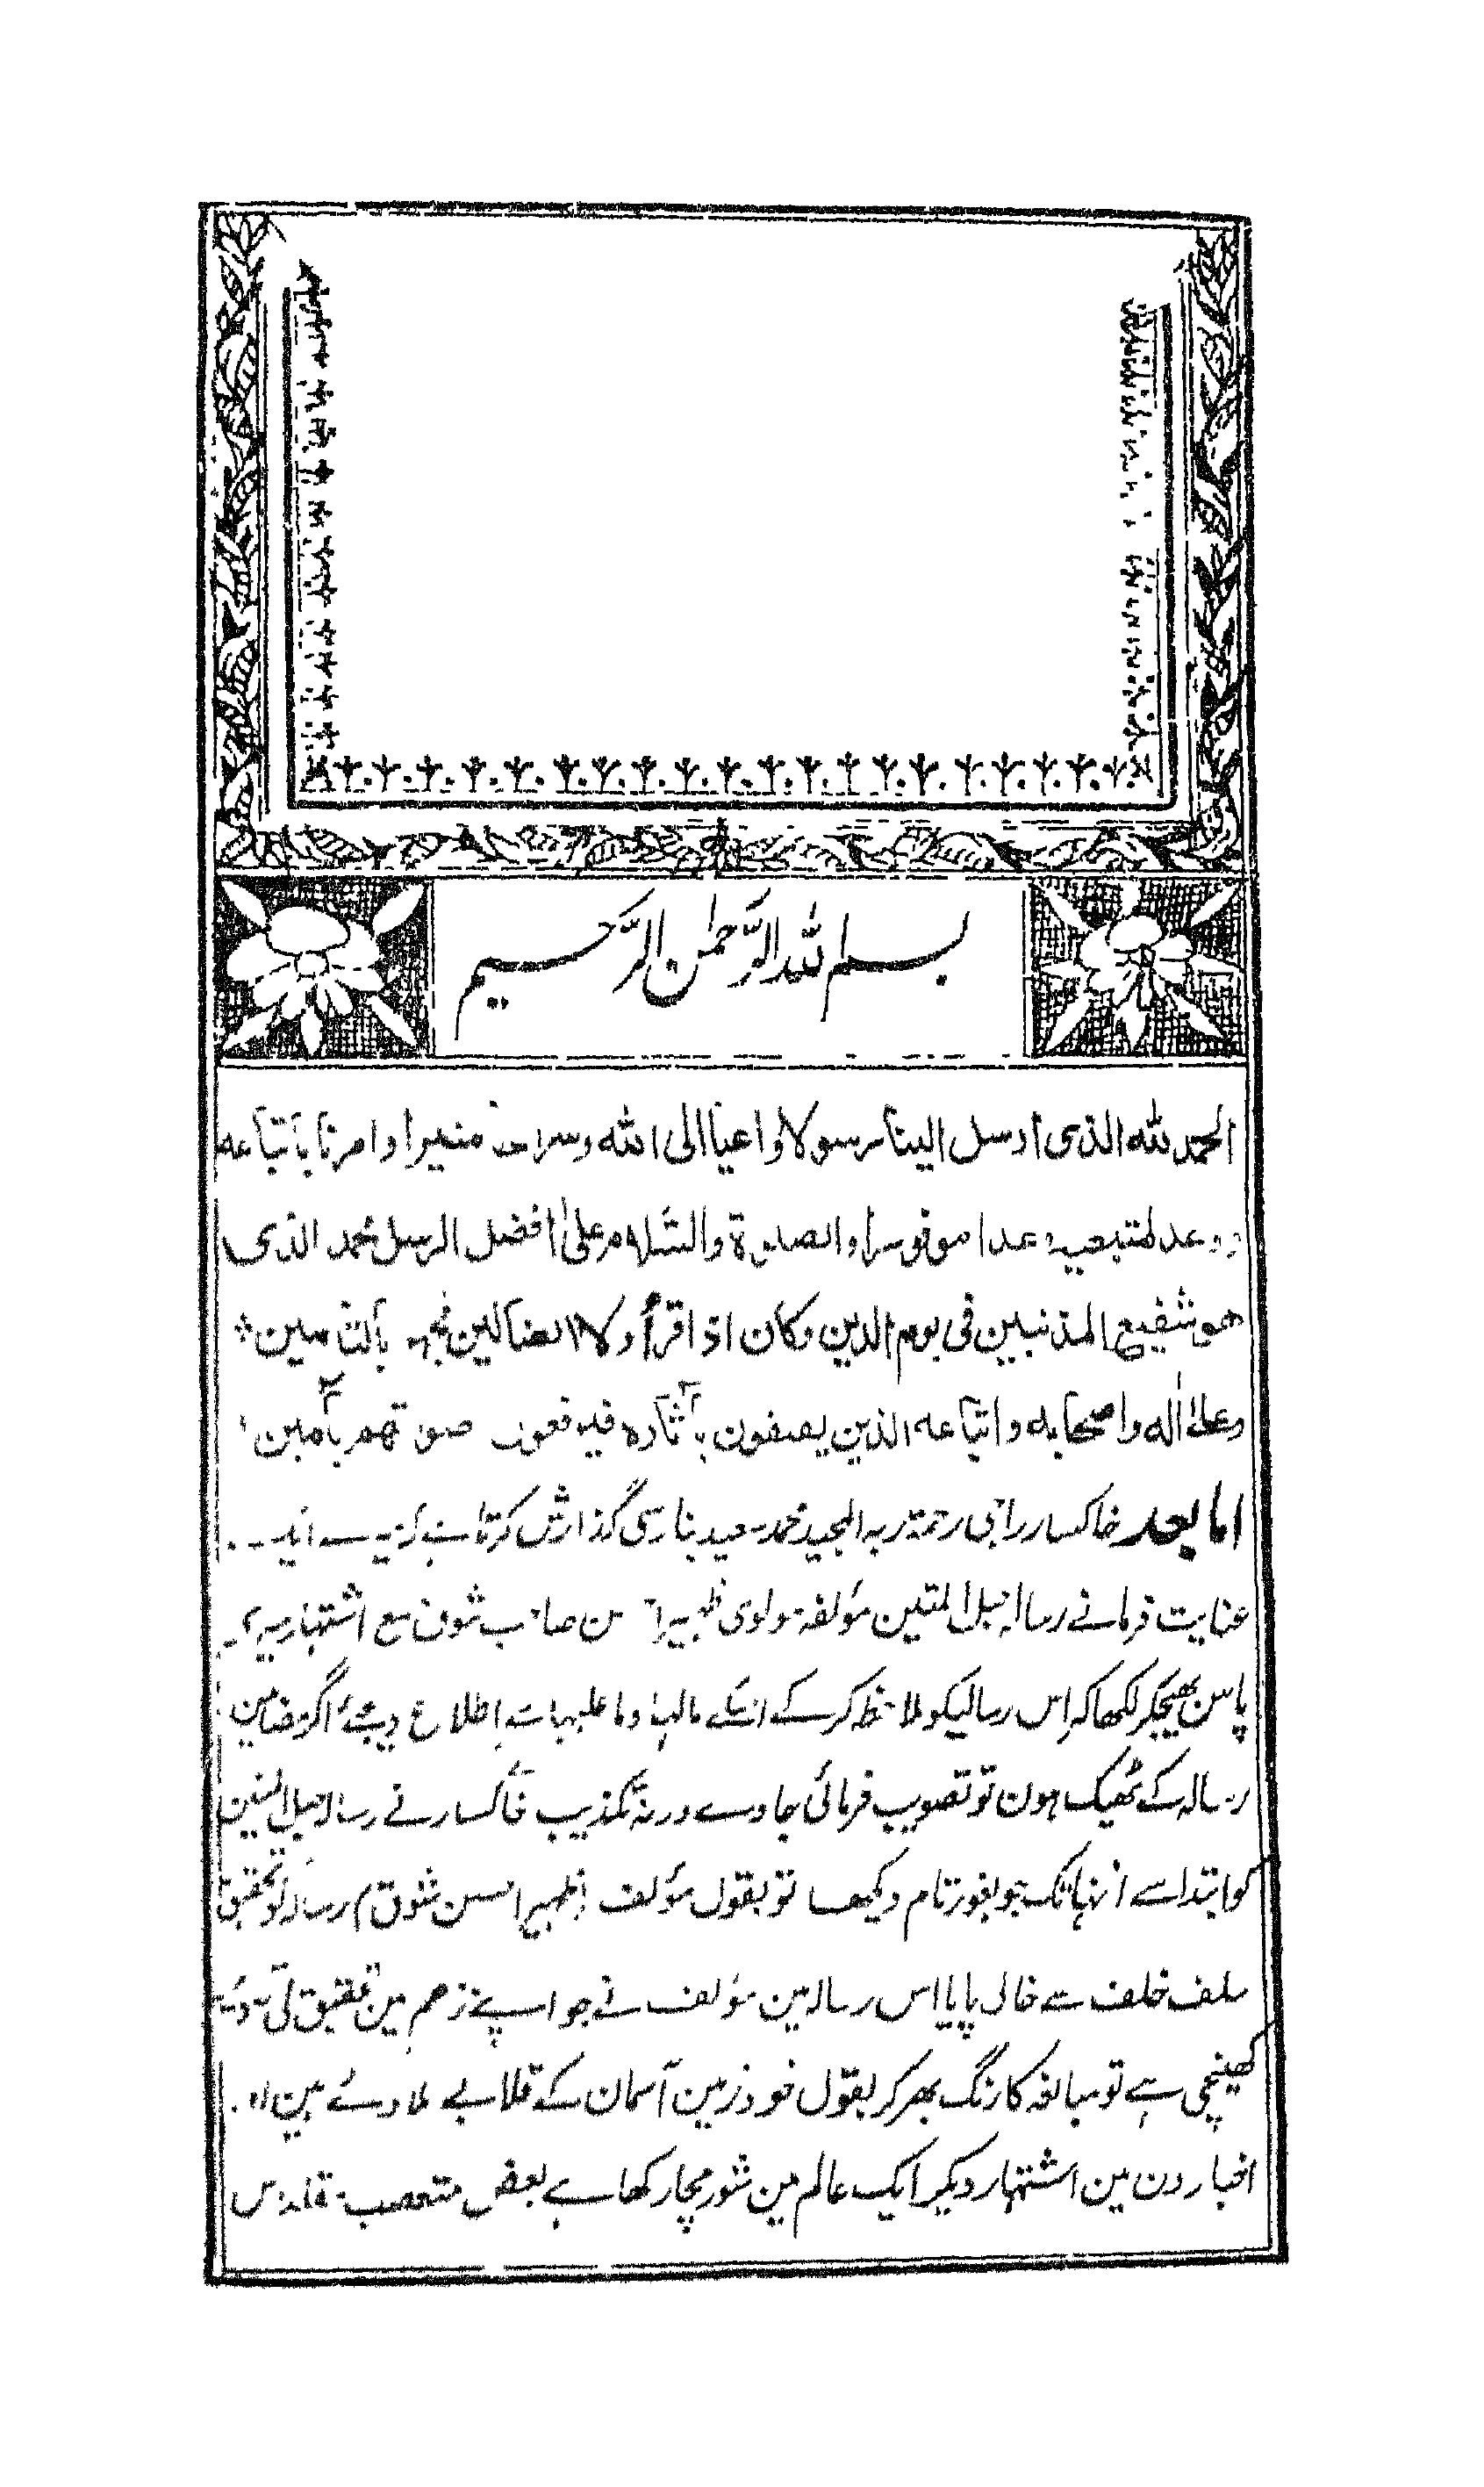 بسم الله الرحمن الرحيم
الحمد لله الذی ارسل الینا رسولا داعیا الی الله وسراجا منیرا وامرنا باتباعه
ووعد لمتبعیه عدا موفورا والصلوة والسلام علیٰ افضل الرسل محمد الذی
هو شفیع المذنبین فی یوم الدین وکان اذا قرأ ولا الضالین یجهر بالتامین
وعلیٰ اٰله واصحابه واتباعه الذین یصفون بآثاره فیرفعون صوتهم بآمین
اما بعد خاکسار راجی رحمة ربہ المجید محمد سعید بنارسی گذارش کرتا ہے کہ
عنایت فرمانے رسالہ حبل المتین مؤلفہ مولوی ظہیر احسن صاحب شوق مع اشتہار میرے
پاس بھیجکر لکھا کہ اس رسالیکو ملاحظہ کرکے اسکے مالہا وما علیہا سے اطلاع دیجئے اگر مضامین
رسالہ کے ٹھیک ہون تو تصویب فرمائی جاوے ورنہ تکذیب خاکسار نے رسالہ حبل المتین
کو ابتدا سے انتہا تک جو بغور تام دیکھا تو بقول مؤلف (ظہیر احسن شوق) رسالہ کو تحقیق
سلف خلف سے خالی پایا اس رسالہ مین مؤلف نے جو اپنے زعم مین تحقیق کی
کھینچی ہے تو مبالغہ کا رنگ بھر کر بقول خود زمین آسمان کے قلابے ملا دئے ہین اور
اخبارون مین اشتہار دیکر ایک عالم مین شور مچا رکھا ہے بعض متعصب مقلد اس